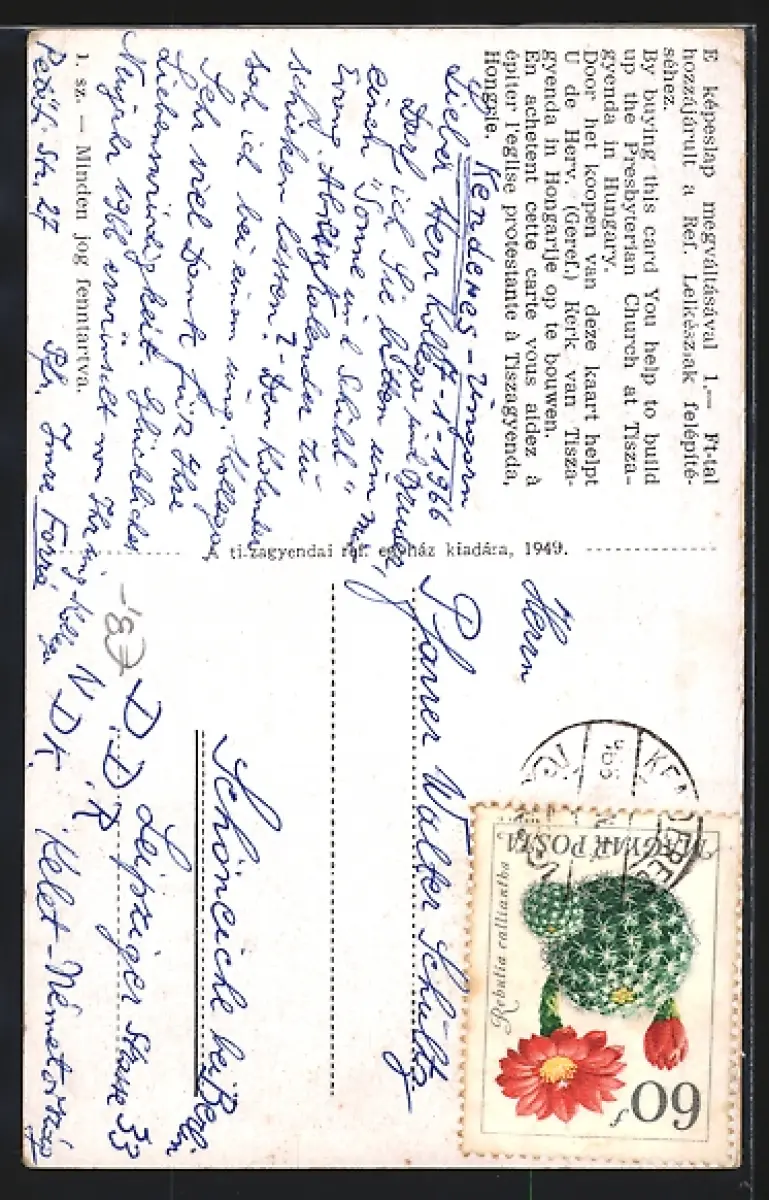 E képeslap megváltásával 1.— Ft-tal
hozzájárult a Ref. Lelkészlak felépíté-
séhez.
By buying this card You help to build
up the Presbyterian Church at Tisza-
gyenda in Hungary.
Door het koopen van deze kaart helpt
U de Herv. (Geref.) Kerk van Tisza-
gyenda in Hongarije op te bouwen.
En achetent cette carte vous aidez à
épiter l'eglise protestante à Tiszagyenda,
Hongrie.
Kenderes-Ungarn
1-1-1966
Lieber Herr Kollege und Bruder,
Darf ich Sie bitten um
einen "Sonne und Schild"
Evang. Abreisskalender zu
schicken lassen? - Den Kalender
sah ich bei einem ung. Kollegen
Sehr viel Dank für Ihre
Liebenswürdigkeit. Glückliches
Neujahr 1966 erwünscht von Ihr ung. Kollege
1. sz. — Minden jog fenntartva.
Pfr. Imre Forró
Petőfi Str. 27
A tiszagyendai ref. egyház kiadára, 1949.
Herrn
Pfarrer Walter Schultz
Schöneiche bei Berlin
Leipziger Strasse 33
D.D.R
NDK. Kelet-Németország
KENDERES
MAGYAR POSTA
Rebutia calliantha
60f